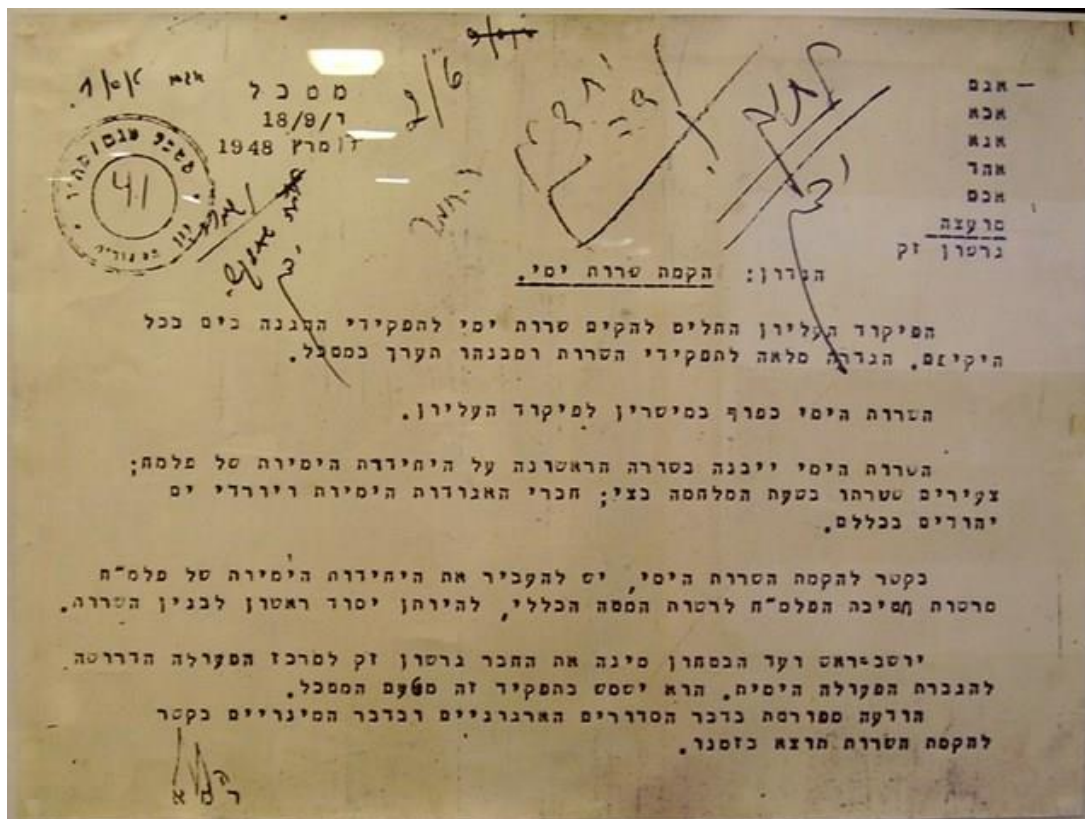 מטכל
18/9/
מרץ 1948
41
אגם
אכא
אגא
אהד
אכם
מועצה
גרשון זק
הנדון: הקמת שרות ימי.
הפיקוד העליון החליט להקים שרות ימי לתפקידי המגנה בים בכל
היקיפם. הגדרה מלאה לתפקידי השרות ומבנהו תערך במטכל.
השרות הימי כפוף במישרין לפיקוד העליון.
השרות הימי ייבנה בשורה הראשונה על היחידות הימיות של פלמח;
צעירים ששרתו בשעת המלחמה בצי; חברי האגודות הימיות ויורדי ים
יהודים בכללם.
בקשר להקמת השרות הימי, יש להעביר את היחידות הימיות של פלמ"ח
מרשות חטיבה הפלמ"ח לרשות המטה הכללי, להיותן יסוד ראשון לבנין השרות.
יושב=ראש ועד הבטחון מינה את החבר גרשון זק למרכז הפעולה הדרושה
להגברת הפעולה הימית. הוא ישמש בתפקיד זה מטעם המטכל.
הודעה מפורטת בדבר הסדורים הארגוניים ובדבר המינויים בקשר
להקמת השרות תוצא בזמנו.
רמא